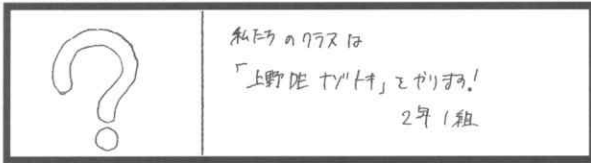 私たちのクラスは
「上野DE ナゾトキ」をやります!
2年1組